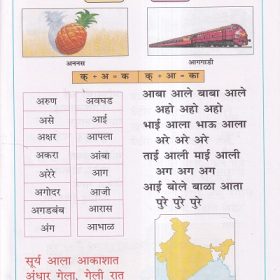 अननस
आगगाडी
क् + अ = क
क् + आ = का
अरुण
असे
अक्षर
अकरा
अरेरे
अगोदर
अगडबंब
अंग
अवघड
आई
आपला
आंबा
आग
आजी
आरास
आभाळ
आबा आले बाबा आले
अहो अहो अहो
भाई आला भाऊ आला
अरे अरे अरे
ताई आली माई आली
अग अग अग
आई बोले बाळा आता
पुरे पुरे पुरे
सूर्य आला आकाशात
अंधार गेला, गेली रात